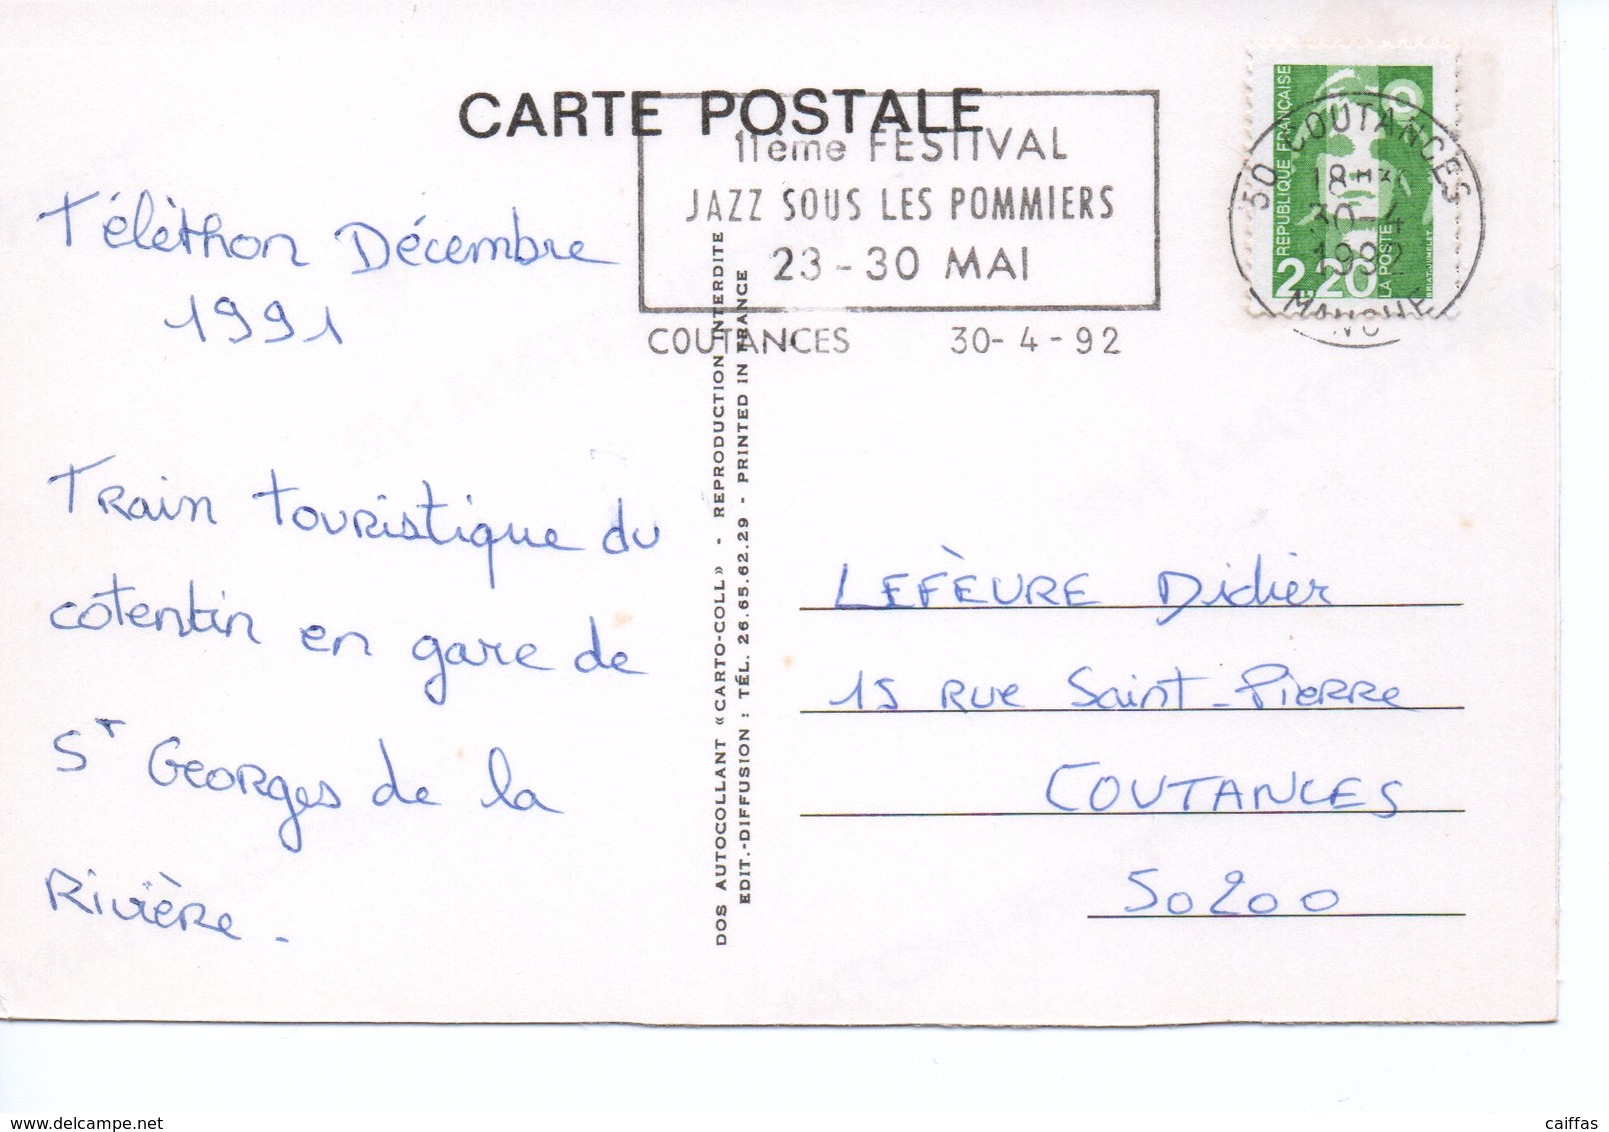 CARTE POSTALE
11ème FESTIVAL
JAZZ SOUS LES POMMIERS
23-30 MAI
COUTANCES 30-4-92
50 COUTANCES
18H
30-4
1992
MANCHE
RÉPUBLIQUE FRANÇAISE
2,20
LA POSTE
Téléthon Décembre
1991
Train touristique du
cotentin en gare de
St Georges de la
Rivière.
DOS AUTOCOLLANT «CARTO-COLL» - REPRODUCTION INTERDITE
EDIT.-DIFFUSION : TÉL. 26.65.62.29 - PRINTED IN FRANCE
LEFÈVRE Didier
15 Rue Saint-Pierre
COUTANCES
50200
caiffas